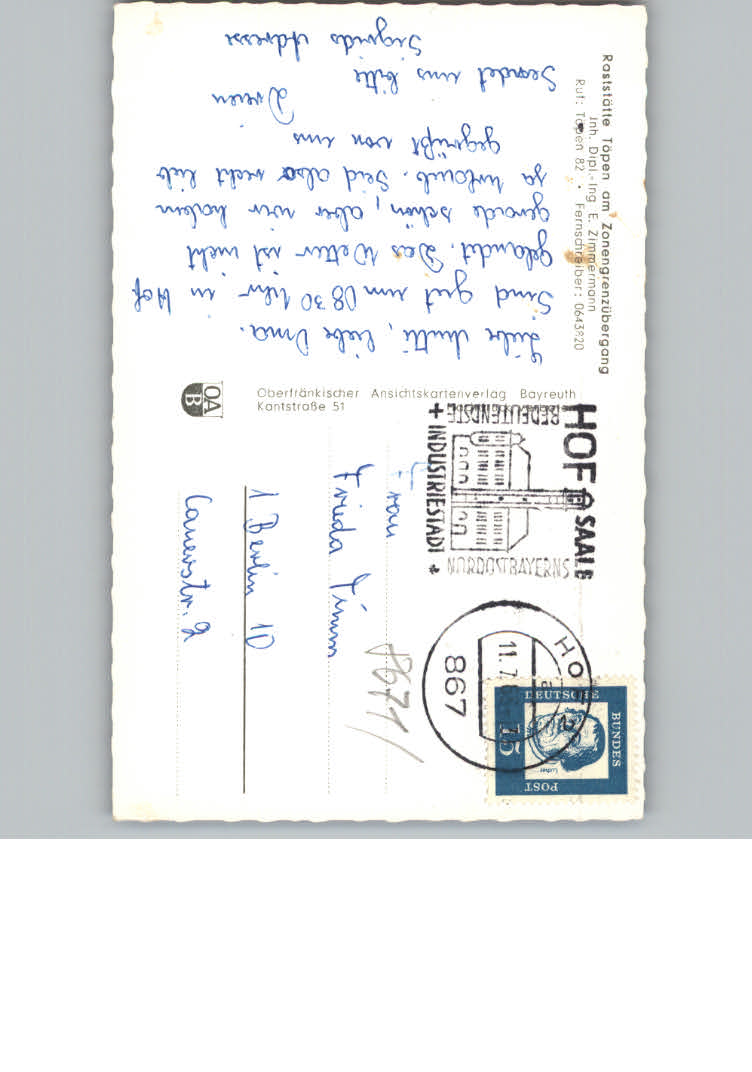 Raststätte Töpen am Zonengrenzübergang
Inh. Dipl.-Ing. E. Zimmermann
Ruf: Töpen 82 • Fernschreiber: 0643820
Liebe Mutti, liebe Oma.
Sind gut um 08 30 Uhr in Hof
gelandet. Das Wetter ist nicht
gerade schön, aber wir haben
ja Urlaub. Seid also recht lieb
gegrüßt von uns
Dreien
Sendet uns bitte
Sigrids Adresse
Oberfränkischer Ansichtskartenverlag Bayreuth
Kantstraße 51
OA
B
HOF SAALE
BEDEUTENDSTE
INDUSTRIESTADT
NORDOSTBAYERNS
HOF
11.7.
867
DEUTSCHE
BUNDES
POST
15
Luther
8671
Frau
Frieda Timm
1 Berlin 10
Cauerstr. 2